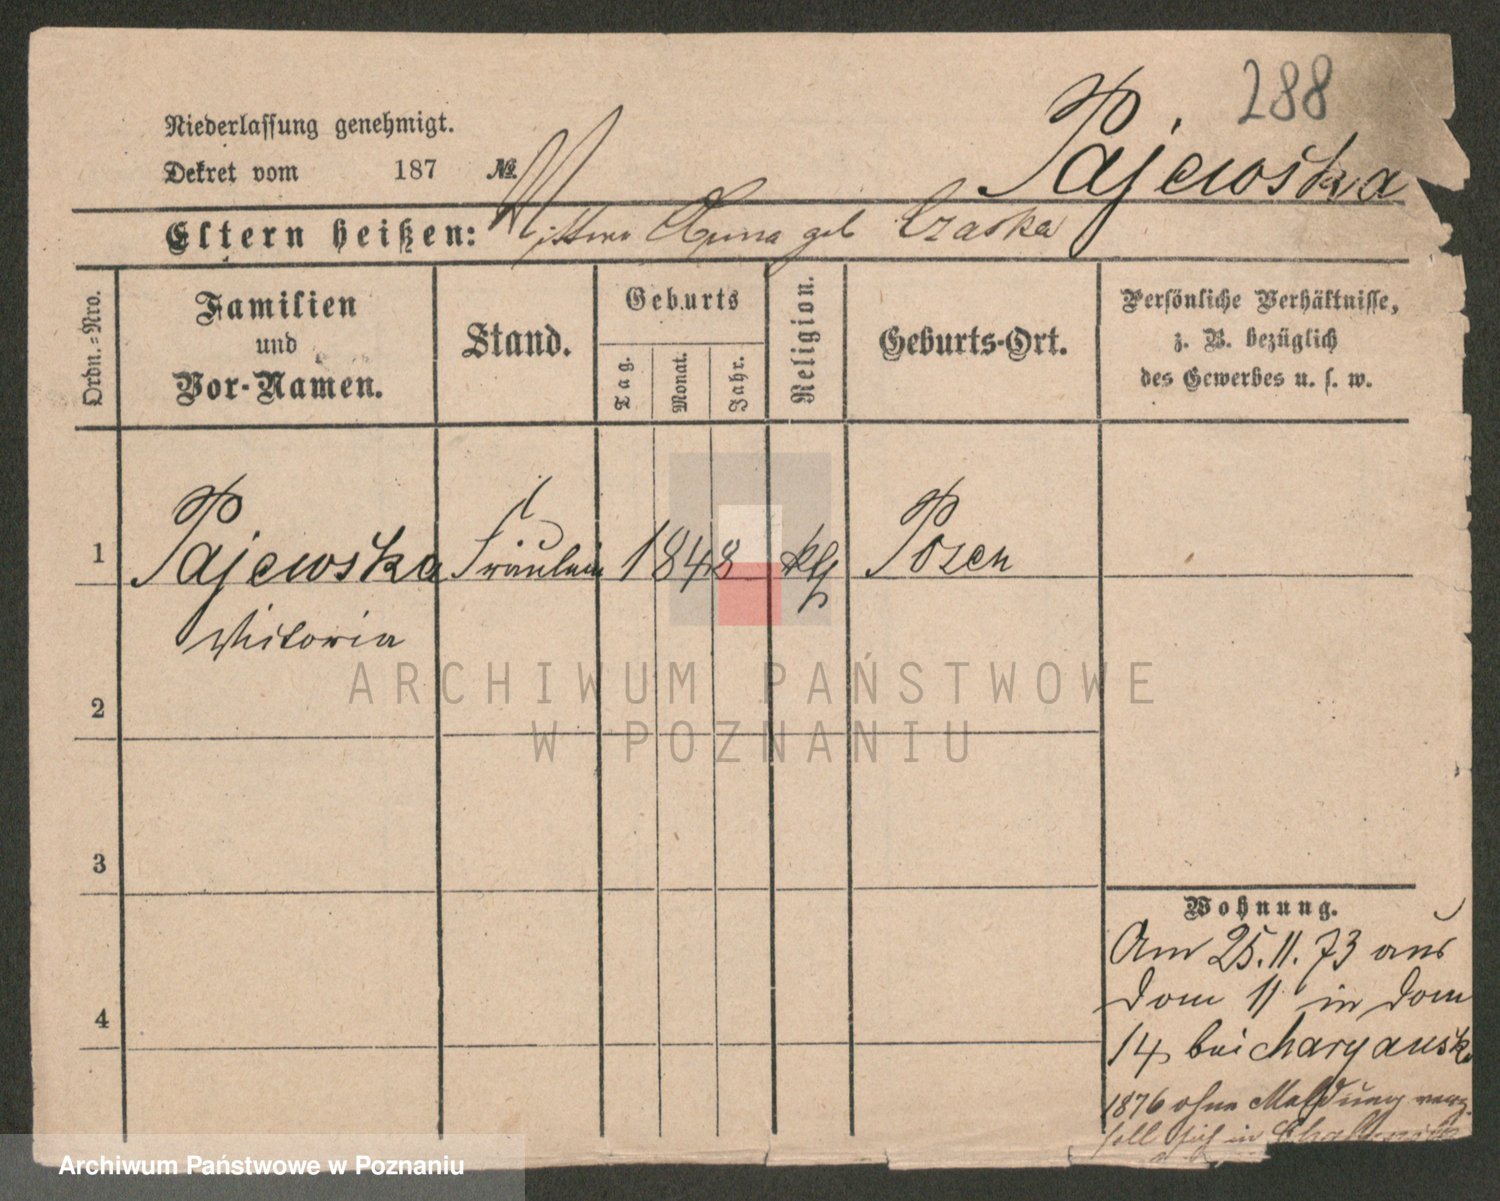 288
Pajewska
Niederlassung genehmigt.
Dekret vom 187 №
Eltern heißen: Mutter Anna geb Czaska
Ordn.-Nro.
Familien
und
Vor-Namen.
Stand.
Geburts
Tag.
Monat.
Jahr.
Religion.
Geburts-Ort.
Persönliche Verhältnisse,
z. B. bezüglich
des Gewerbes u. s. w.
1 Pajewska Fräulein 1848 kth Posen
Victoria
2
3
4
Wohnung.
Am 25.11.73 aus
Dom 11 in Dom
14 bei
1876 ohne Meldung verz.
soll sich in
ARCHIWUM PAŃSTWOWE
W POZNANIU
Archiwum Państwowe w Poznaniu